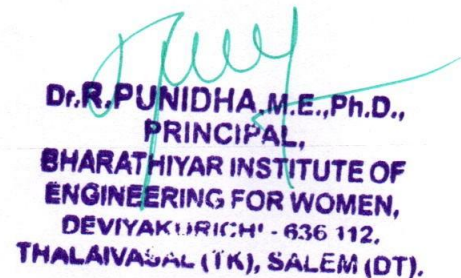 Dr.R.PUNIDHA.M.E.,Ph.D.,
PRINCIPAL,
BHARATHIYAR INSTITUTE OF
ENGINEERING FOR WOMEN,
DEVIYAKURICHI - 636 112.
THALAIVASAL (TK), SALEM (DT).